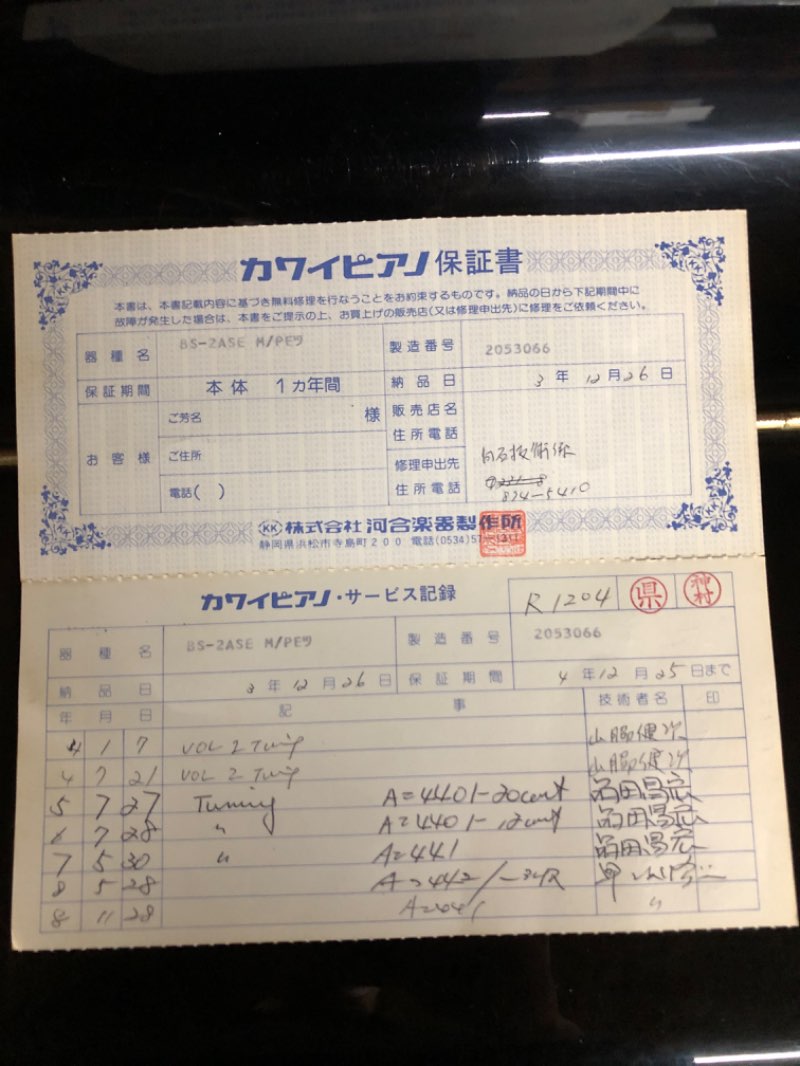 カワイピアノ保証書
本書は、本書記載内容に基づき無料修理を行なうことをお約束するものです。納品の日から下記期間中に
故障が発生した場合は、本書をご提示の上、お買上げの販売店(又は修理申出先)に修理をご依頼ください。
器種名 BS-2ASE M/PEツ 製造番号 2053066
保証期間 本体 1カ年間 納品日 3年12月26日
お客様 ご芳名 様 販売店名
住所電話
ご住所
修理申出先
電話( ) 住所電話 824-5410
KK 株式会社 河合楽器製作所
静岡県浜松市寺島町200 電話(0534)57-1311
カワイピアノ・サービス記録 R1204 県 神村
器種名 BS-2ASE M/PEツ 製造番号 2053066
納品日 3年12月26日 保証期間 4年12月25日まで
年月日 記事 技術者名 印
4 1 7 VOL 1 Tuning
4 7 21 VOL 2 Tuning
5 7 27 Tuning A=440 -20cent
7 28 〃 A=440 -12cent
7 5 30 〃 A=441
8 5 28 A=442
8 11 28 〃